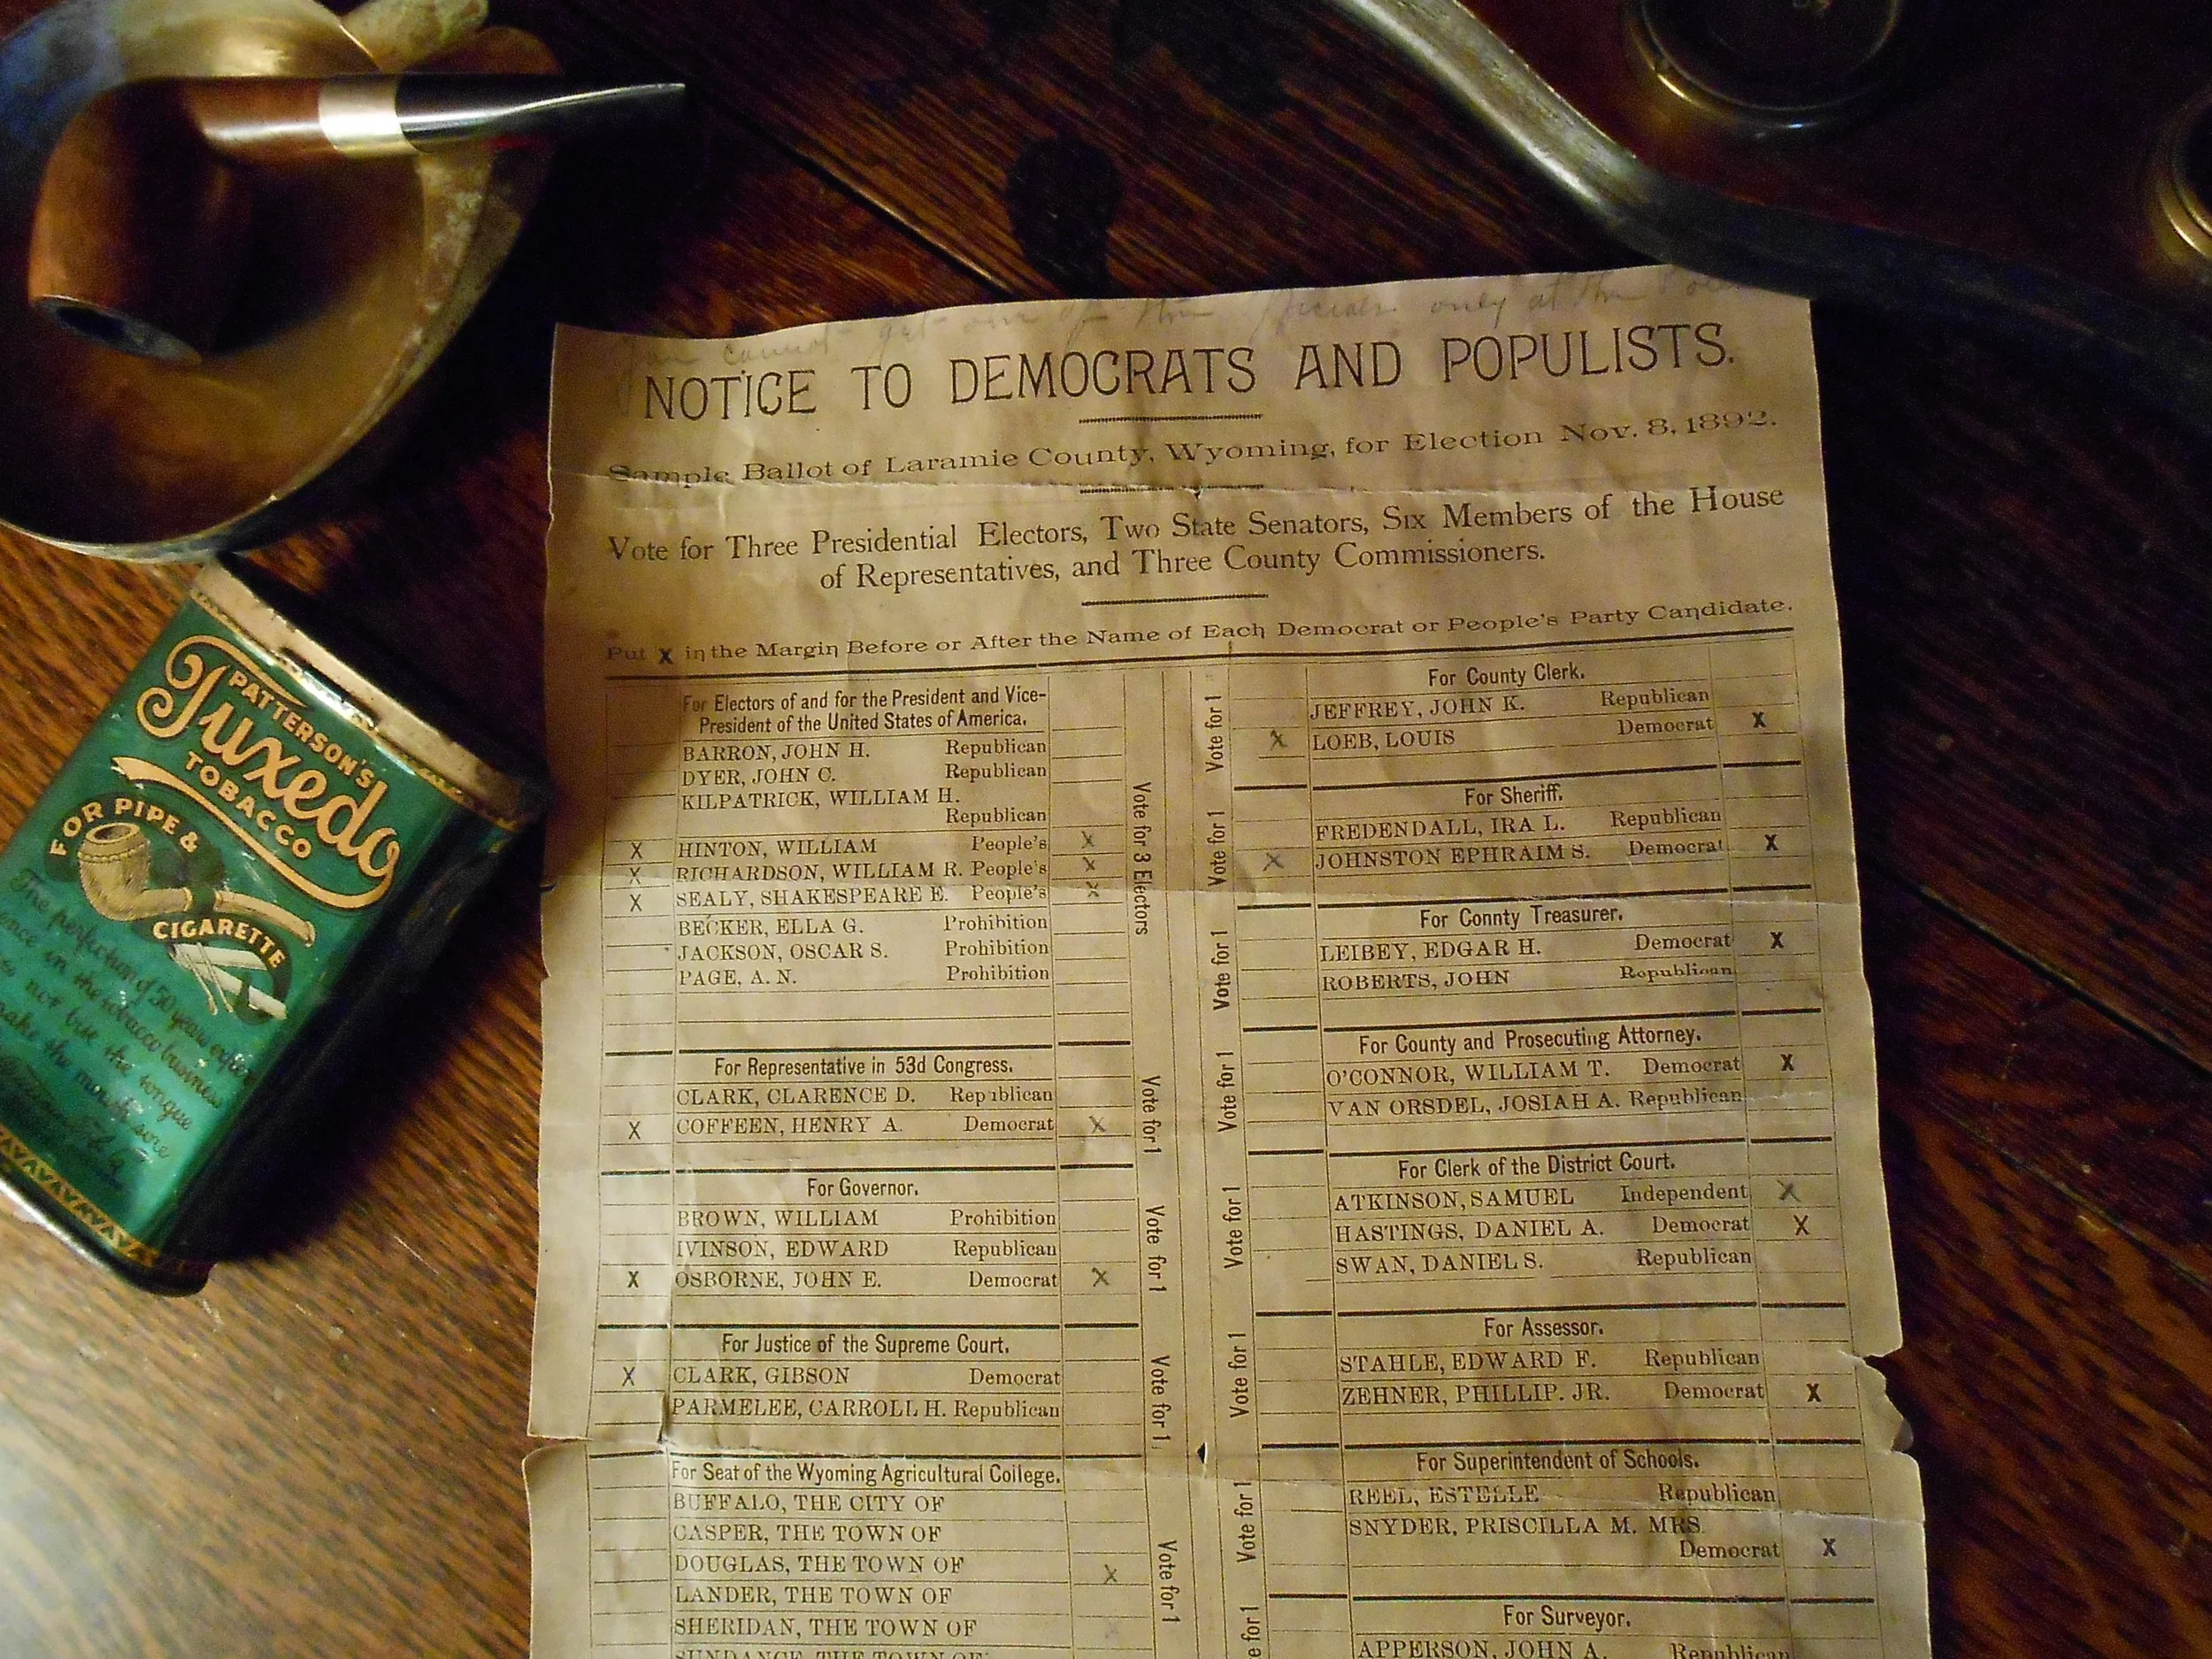 cannot get one of these officials only at the
NOTICE TO DEMOCRATS AND POPULISTS.
Sample Ballot of Laramie County, Wyoming, for Election Nov. 8, 1892.
Vote for Three Presidential Electors, Two State Senators, Six Members of the House
of Representatives, and Three County Commissioners.
Put X in the Margin Before or After the Name of Each Democrat or People's Party Candidate.
For Electors of and for the President and Vice-
President of the United States of America.
BARRON, JOHN H. Republican
DYER, JOHN C. Republican
KILPATRICK, WILLIAM H.
Republican
X HINTON, WILLIAM People's X
X RICHARDSON, WILLIAM R. People's X
X SEALY, SHAKESPEARE E. People's X
BECKER, ELLA G. Prohibition
JACKSON, OSCAR S. Prohibition
PAGE, A. N. Prohibition
Vote for 3 Electors
For Representative in 53d Congress.
CLARK, CLARENCE D. Republican
X COFFEEN, HENRY A. Democrat X
Vote for 1
For Governor.
BROWN, WILLIAM Prohibition
IVINSON, EDWARD Republican
X OSBORNE, JOHN E. Democrat X
Vote for 1
For Justice of the Supreme Court.
X CLARK, GIBSON Democrat
PARMELEE, CARROLL H. Republican
Vote for 1
For Seat of the Wyoming Agricultural College.
BUFFALO, THE CITY OF
CASPER, THE TOWN OF
DOUGLAS, THE TOWN OF X
LANDER, THE TOWN OF
SHERIDAN, THE TOWN OF
SUNDANCE, THE TOWN OF
Vote for 1
For County Clerk.
JEFFREY, JOHN K. Republican
X LOEB, LOUIS Democrat X
Vote for 1
For Sheriff.
FREDENDALL, IRA L. Republican
X JOHNSTON EPHRAIM S. Democrat X
Vote for 1
For Connty Treasurer.
LEIBEY, EDGAR H. Democrat X
ROBERTS, JOHN Republican
Vote for 1
For County and Prosecuting Attorney.
O'CONNOR, WILLIAM T. Democrat X
VAN ORSDEL, JOSIAH A. Republican
Vote for 1
For Clerk of the District Court.
ATKINSON, SAMUEL Independent X
HASTINGS, DANIEL A. Democrat X
SWAN, DANIEL S. Republican
Vote for 1
For Assessor.
STAHLE, EDWARD F. Republican
ZEHNER, PHILLIP. JR. Democrat X
Vote for 1
For Superintendent of Schools.
REEL, ESTELLE Republican
SNYDER, PRISCILLA M. MRS
Democrat X
Vote for 1
For Surveyor.
APPERSON, JOHN A. Republican
e for 1
PATTERSON'S
Tuxedo
TOBACCO
FOR PIPE &
CIGARETTE
The perfection of 50 years exper
ence in the tobacco business
not bite the tongue
make the mouth sore